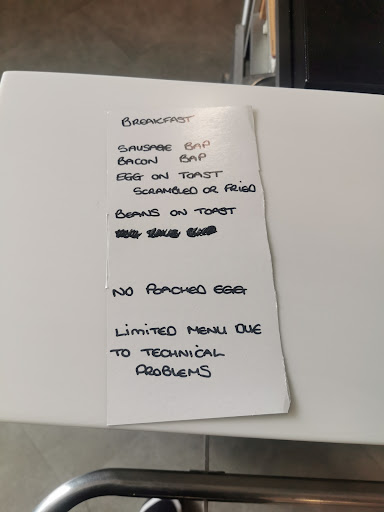 BREAKFAST
SAUSAGE BAP
BACON BAP
EGG ON TOAST
SCRAMBLED OR FRIED
BEANS ON TOAST
NO POACHED EGG
LIMITED MENU DUE
TO TECHNICAL
PROBLEMS